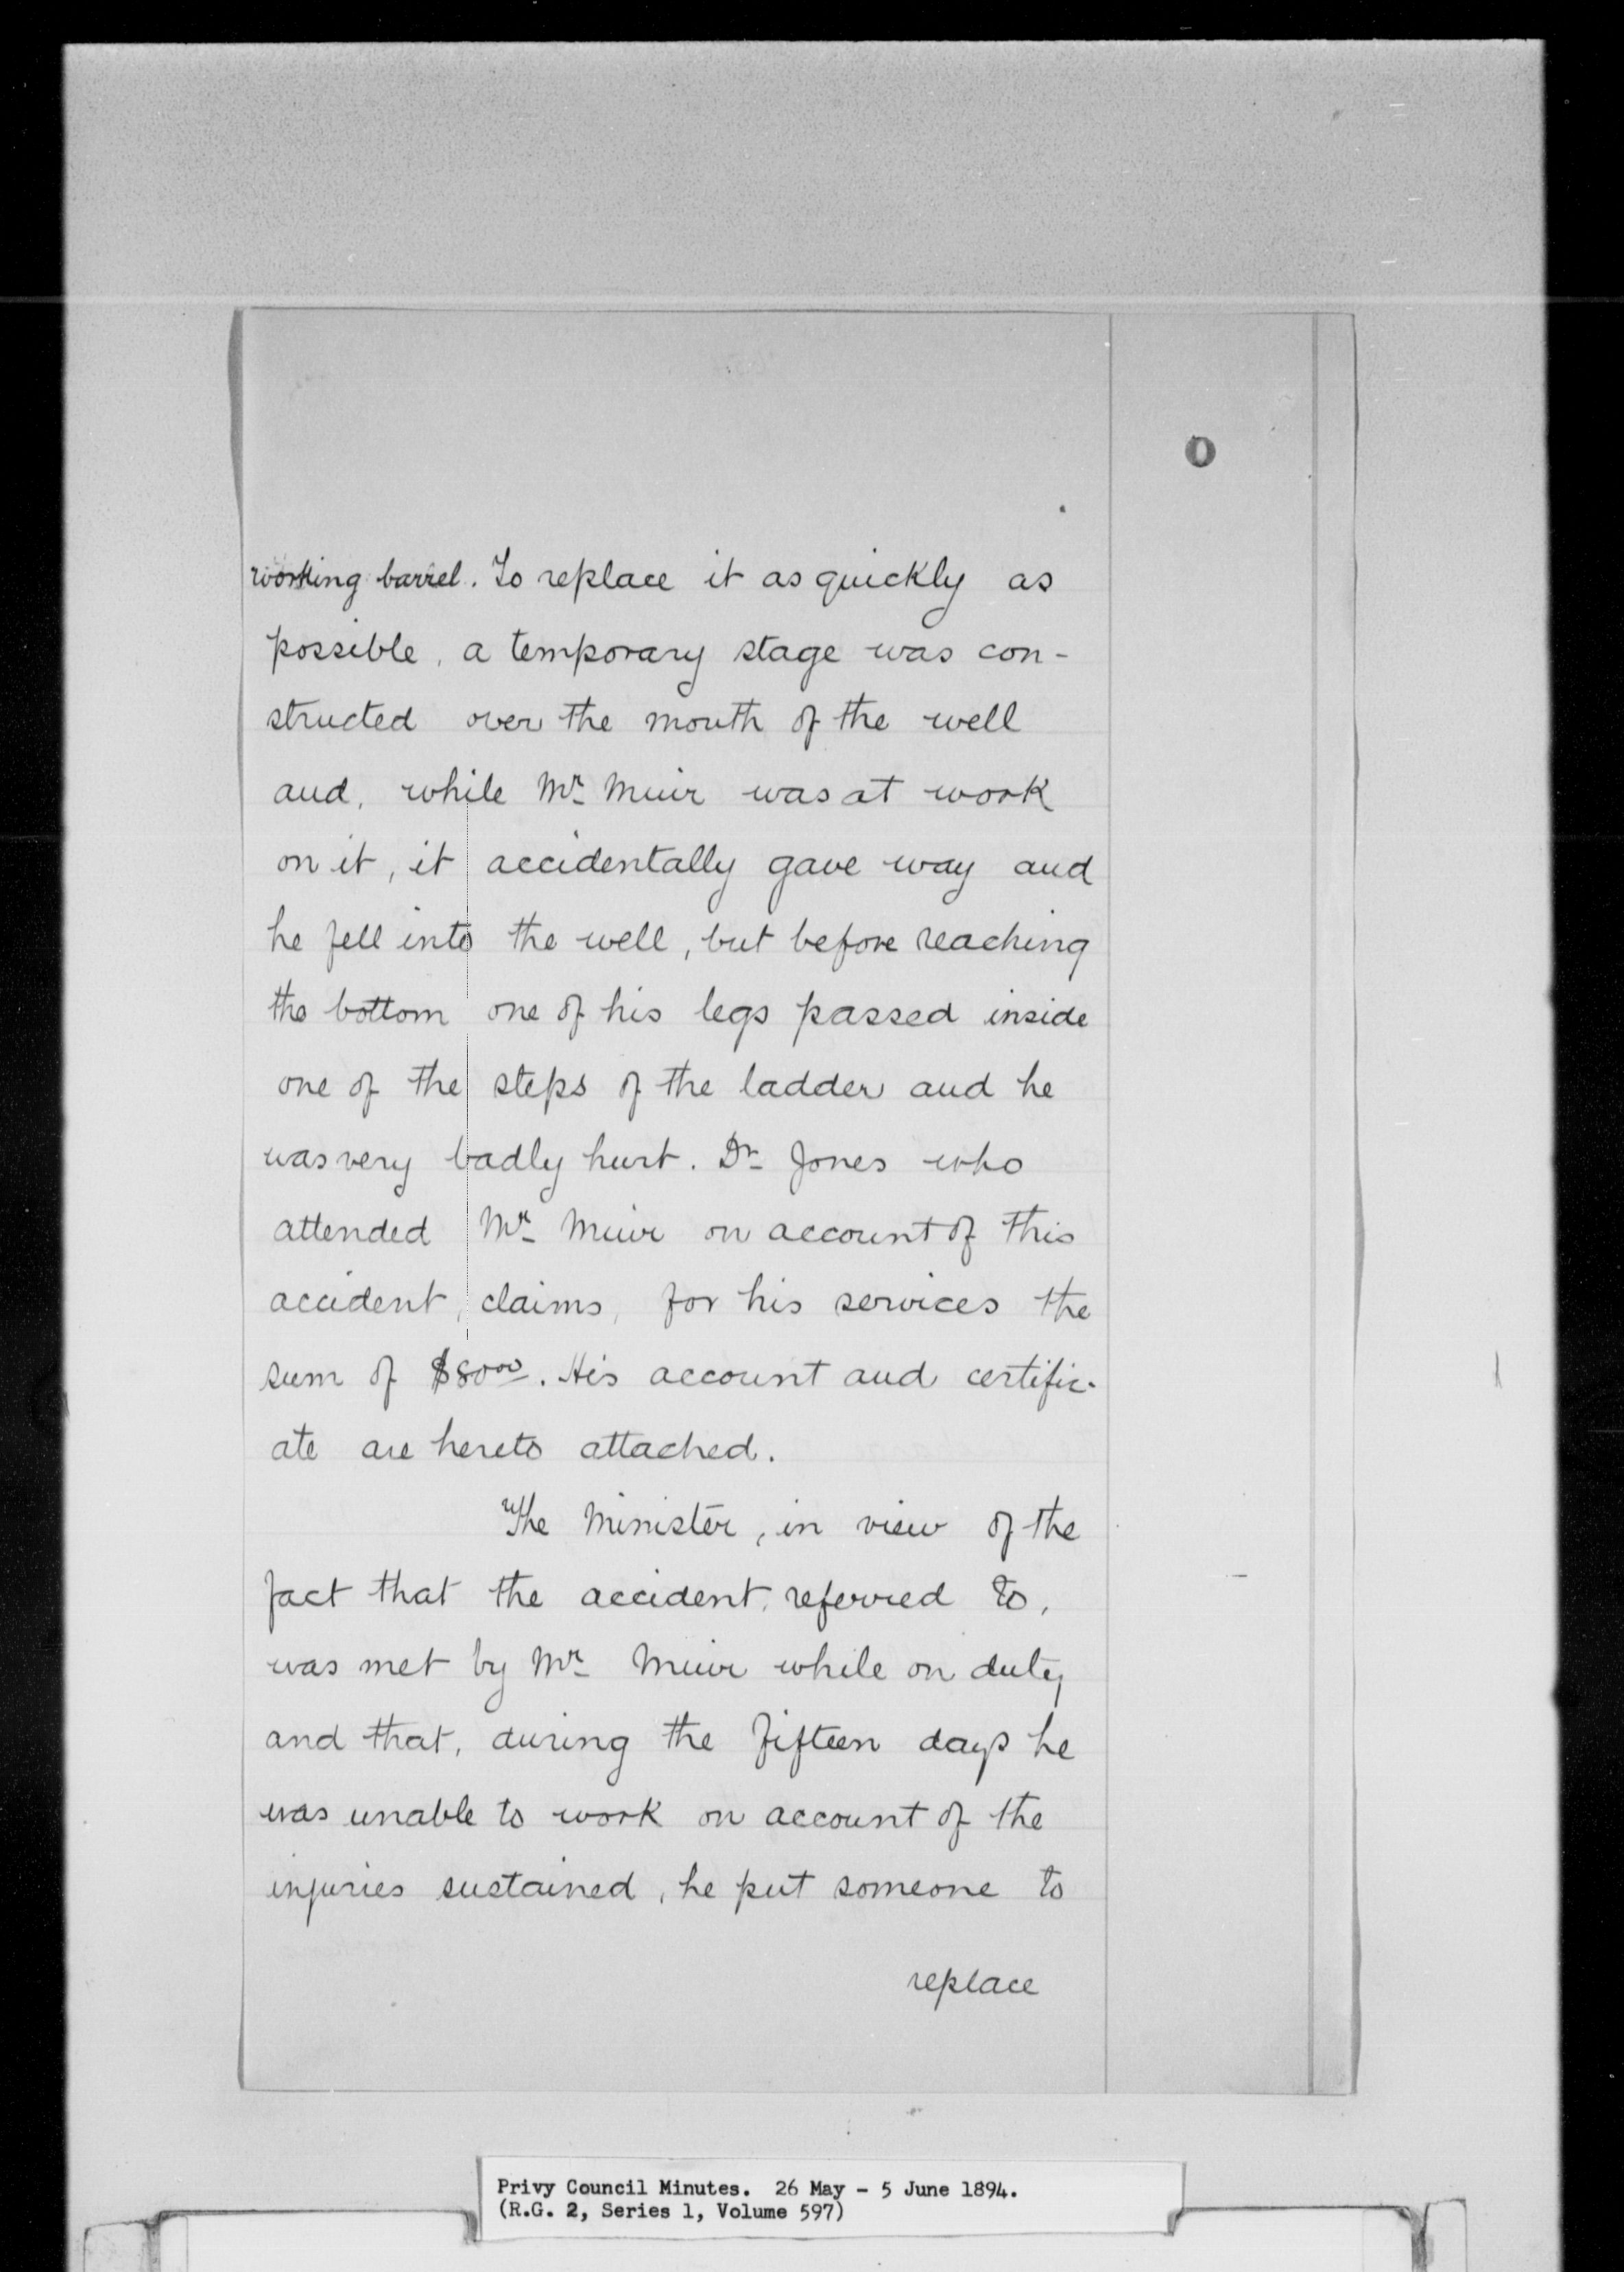 O
working barrel. To replace it as quickly as
possible, a temporary stage was con-
structed over the mouth of the well
and, while Mr. Muir was at work
on it, it accidentally gave way and
he fell into the well, but before reaching
the bottom one of his legs passed inside
one of the steps of the ladder and he
was very badly hurt. Dr. Jones who
attended Mr. Muir on account of this
accident, claims, for his services the
sum of $80.00. His account and certific-
ate are hereto attached.
The Minister, in view of the
fact that the accident, referred to,
was met by Mr. Muir while on duty
and that, during the fifteen days he
was unable to work on account of the
injuries sustained, he put someone to
replace
Privy Council Minutes. 26 May - 5 June 1894.
(R.G. 2, Series 1, Volume 597)